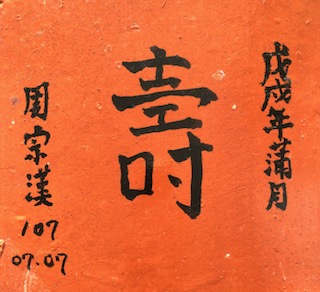 戊戌年蒲月
壽
周宗漢
107
07.07